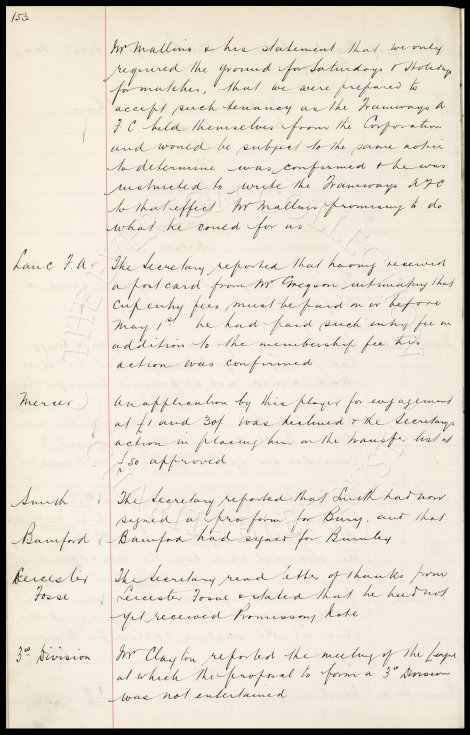 153
Mr Mallins & his statement that we only
required the ground for Saturdays & Holidays
for matches, that we were prepared to
accept such tenancy as the Tramways A
F C held themselves from the Corporation
and would be subject to the same notice
to determine was confirmed & he was
instructed to write the Tramways A F C
to that effect Mr Mallins promising to do
what he could for us
Lanc F.A.
The Secretary reported that having received
a post card from Mr Gregson intimating that
Cup entry fees must be paid on or before
May 1st he had paid such entry fee in
addition to the membership fee his
action was confirmed
Mercer
An application by this player for engagement
at £1 and 30/- was declined & the Secretarys
action in placing him on the transfer list at
£50 approved
Smith
The Secretary reported that Smith had now
signed a pro form for Bury. and that
Bamford
Bamford had signed for Burnley
Leicester
The Secretary read letter of thanks from
Fosse
Leicester Fosse & stated that he had not
yet received Promissory Note
3rd Division
Mr Clayton reported the meeting of the League
at which the proposal to form a 3rd Division
was not entertained